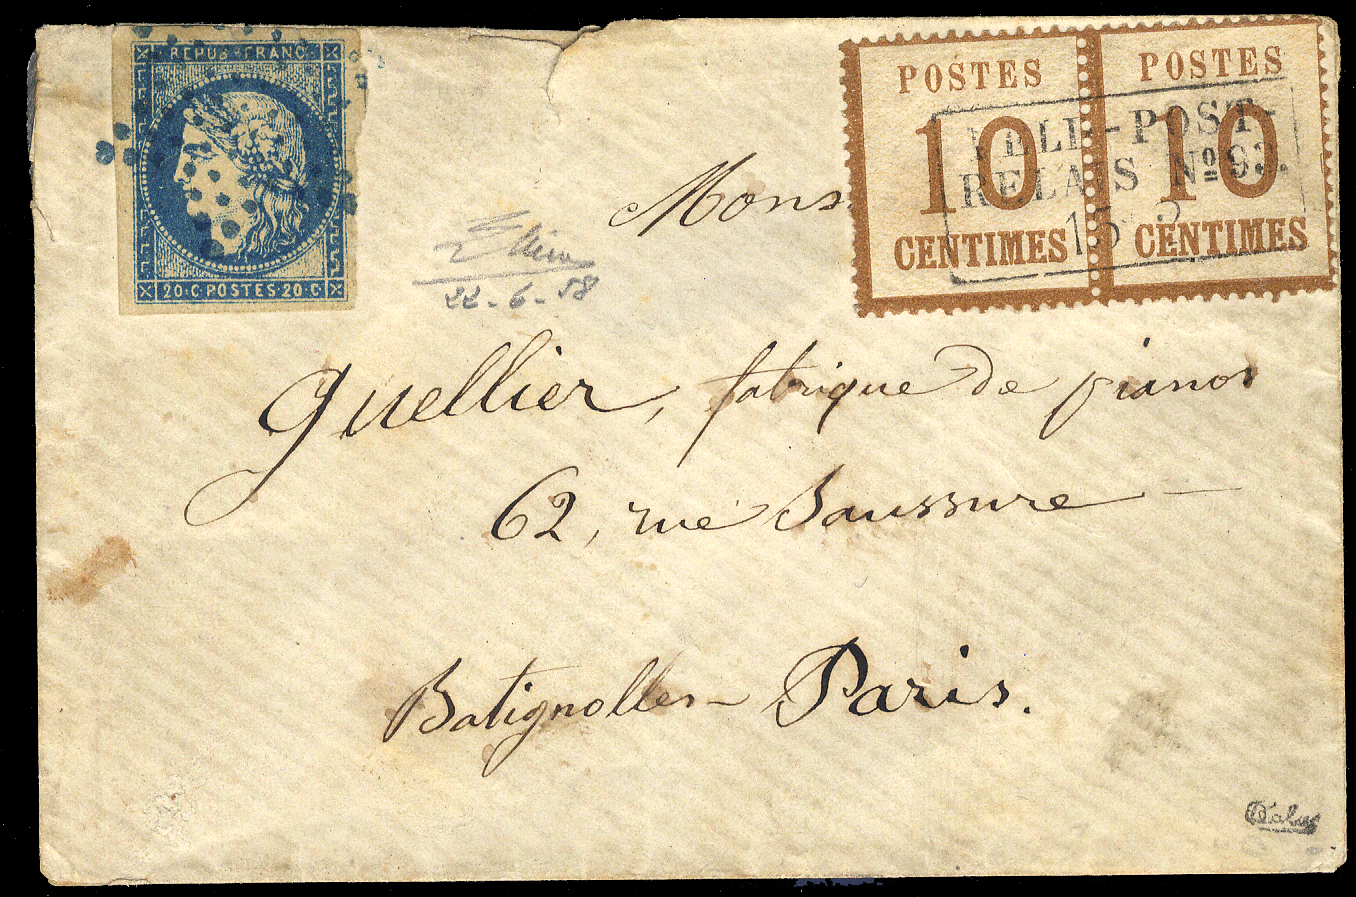 REPUB·FRANC
20·C·POSTES·20·C
POSTES
10
CENTIMES
POSTES
10
CENTIMES
FELD-POST-
RELAIS Nº 93.
15
Mons
22-6-58
Quellier, fabrique de pianos
62, rue Saussure —
Batignolles – Paris.